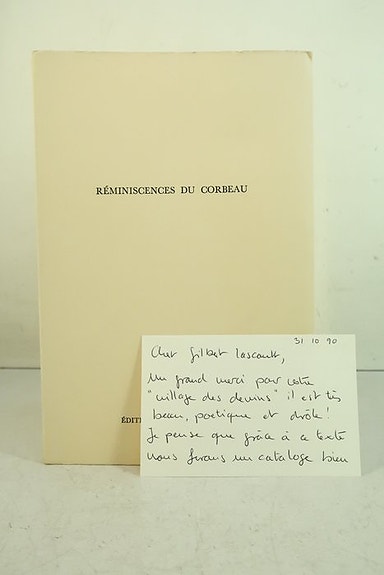 RÉMINISCENCES DU CORBEAU
ÉDIT
31 10 90
Cher Gilbert Lascault,
Un grand merci pour votre
"village des devins" il est très
beau, poétique et drôle!
Je pense que grâce à ce texte
nous ferons un catalogue bien